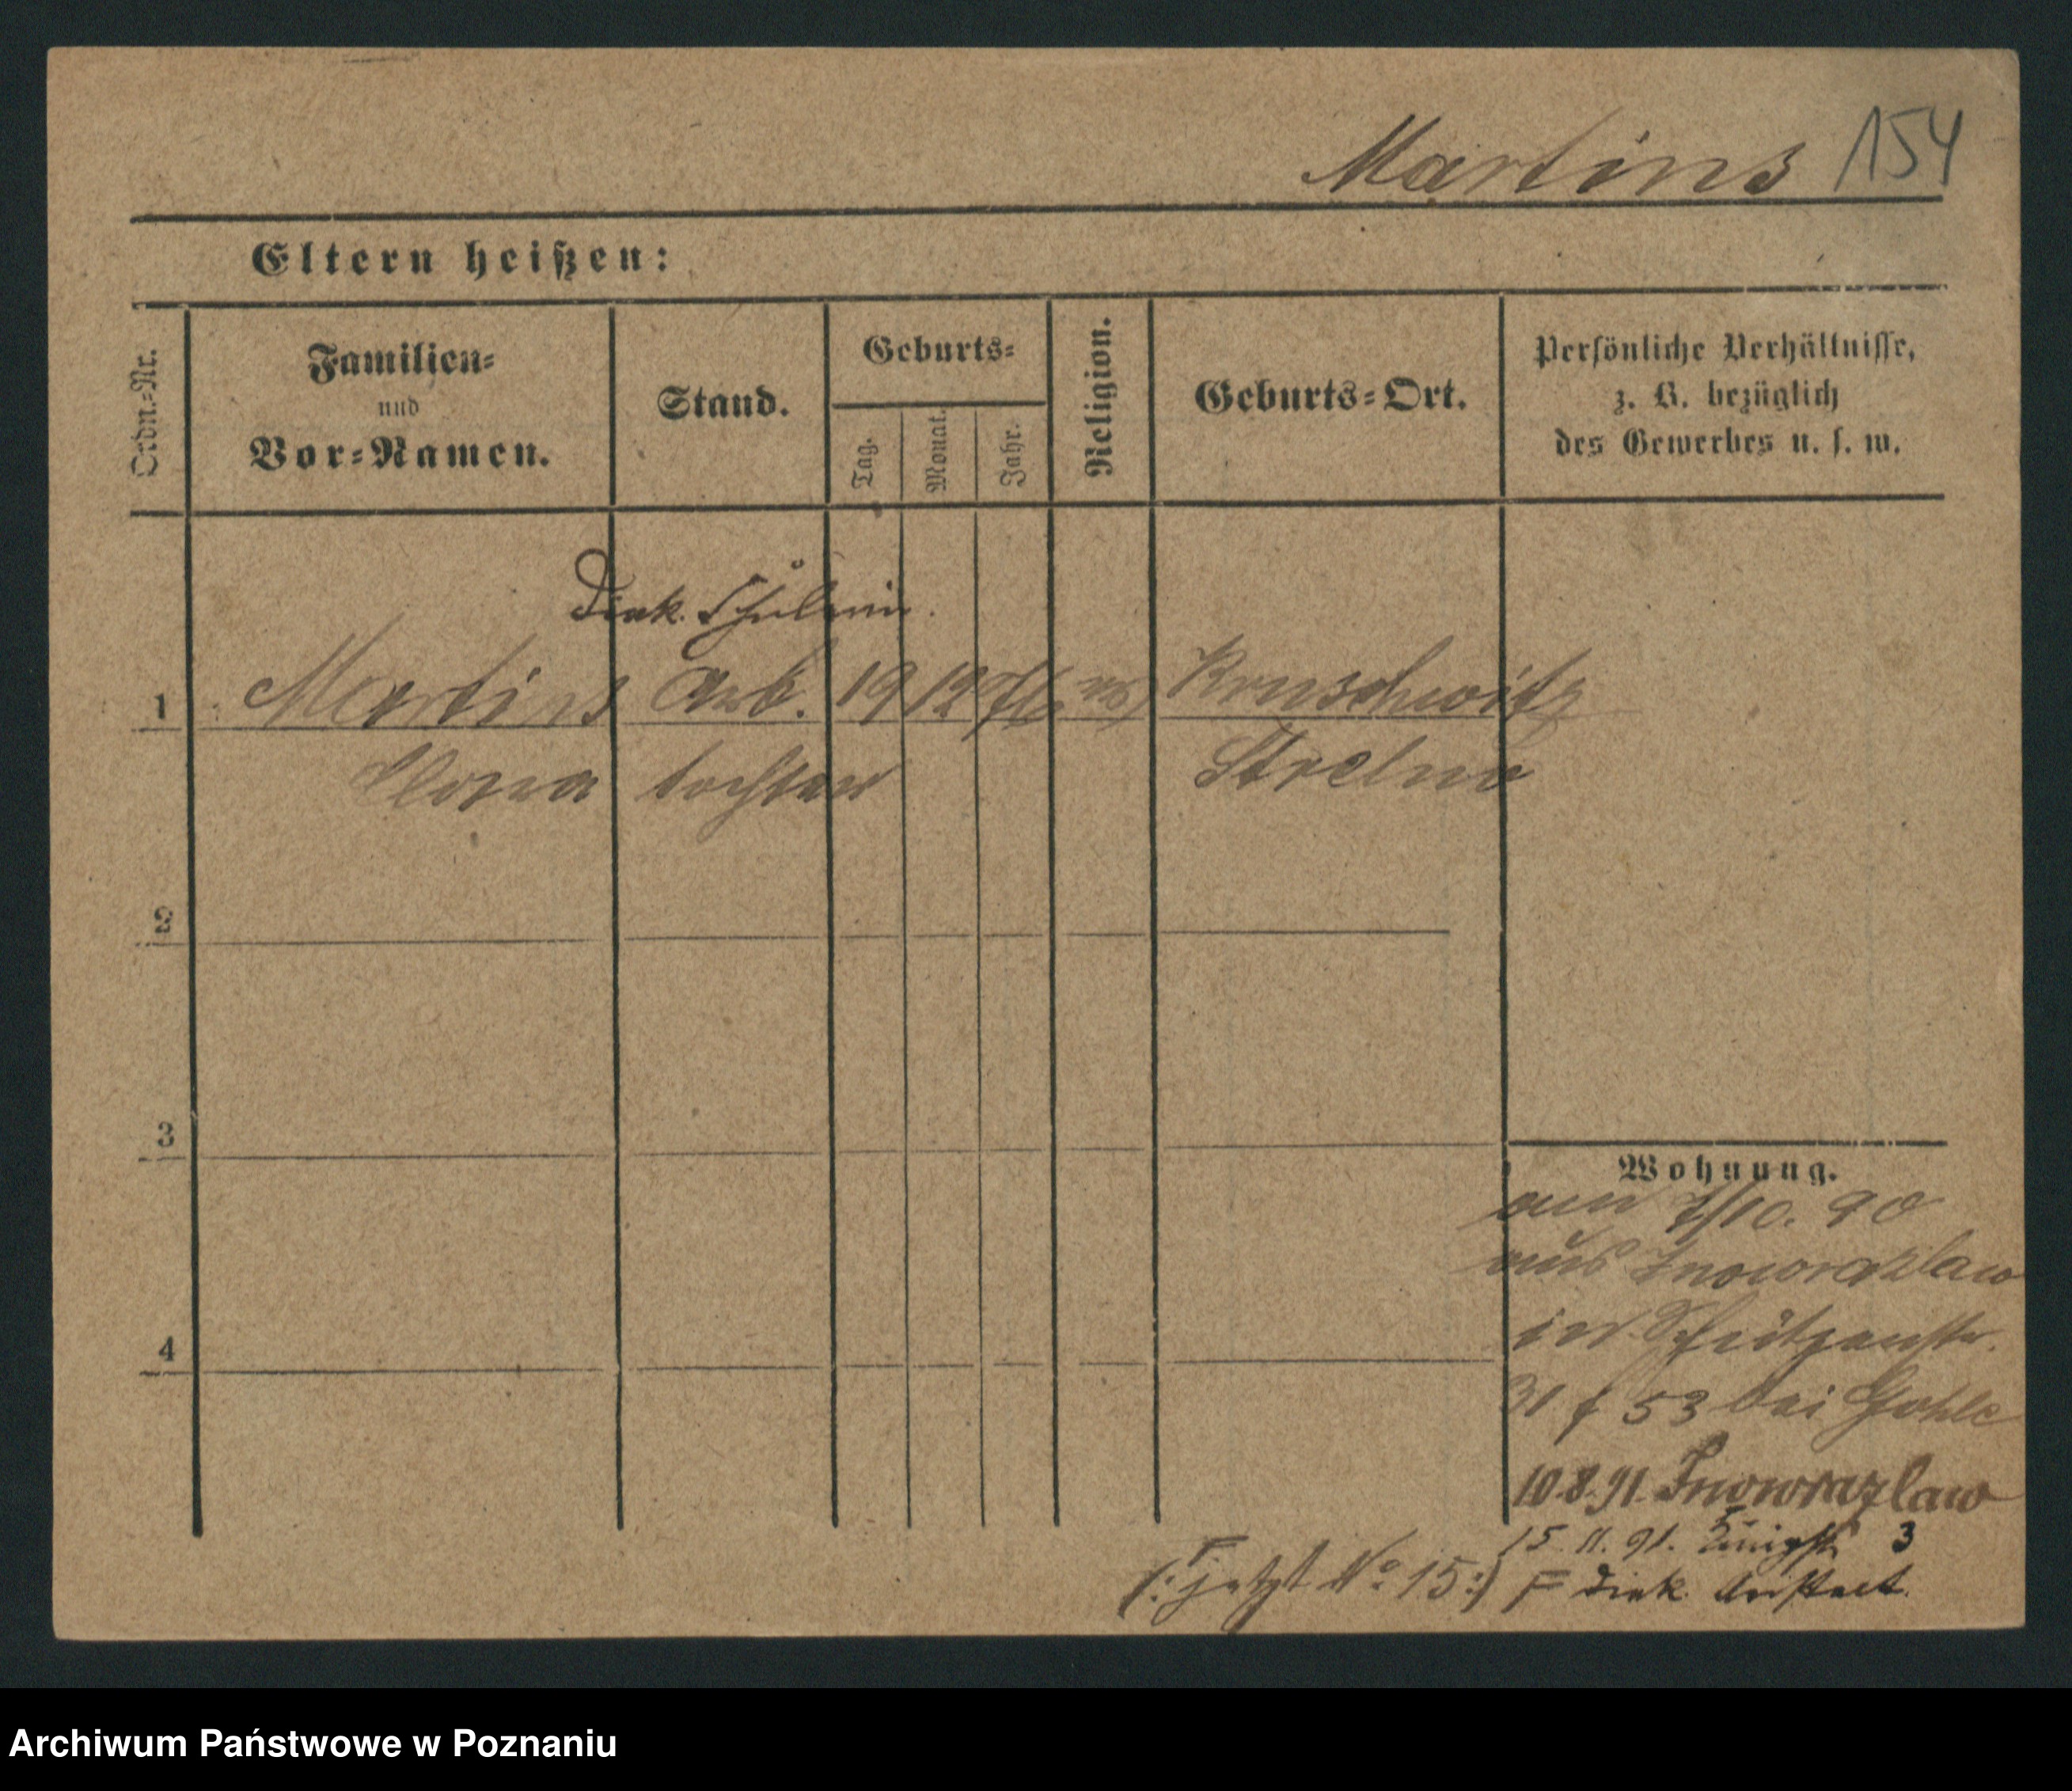 Martins 154
Eltern heißen:
Ordn.-Nr.
Familien-
und
Vor-Namen.
Stand.
Geburts-
Tag.
Monat.
Jahr.
Religion.
Geburts-Ort.
Persönliche Verhältnisse,
z. B. bezüglich
des Gewerbes u. s. w.
Diak. Schülerin.
1 Martins Arb. 19 12 76 ev Kruschwitz
Clara tochter Strelno
2
3
4
Wohnung.
am 7/10. 90
aus Inowrazlaw
in Schützenstr.
31 f 53 bei Gohlc
10.8.91. Inowrazlaw
15. 11. 91. Königstr 3
(: jetzt No 15 :) Diak. Anstalt.